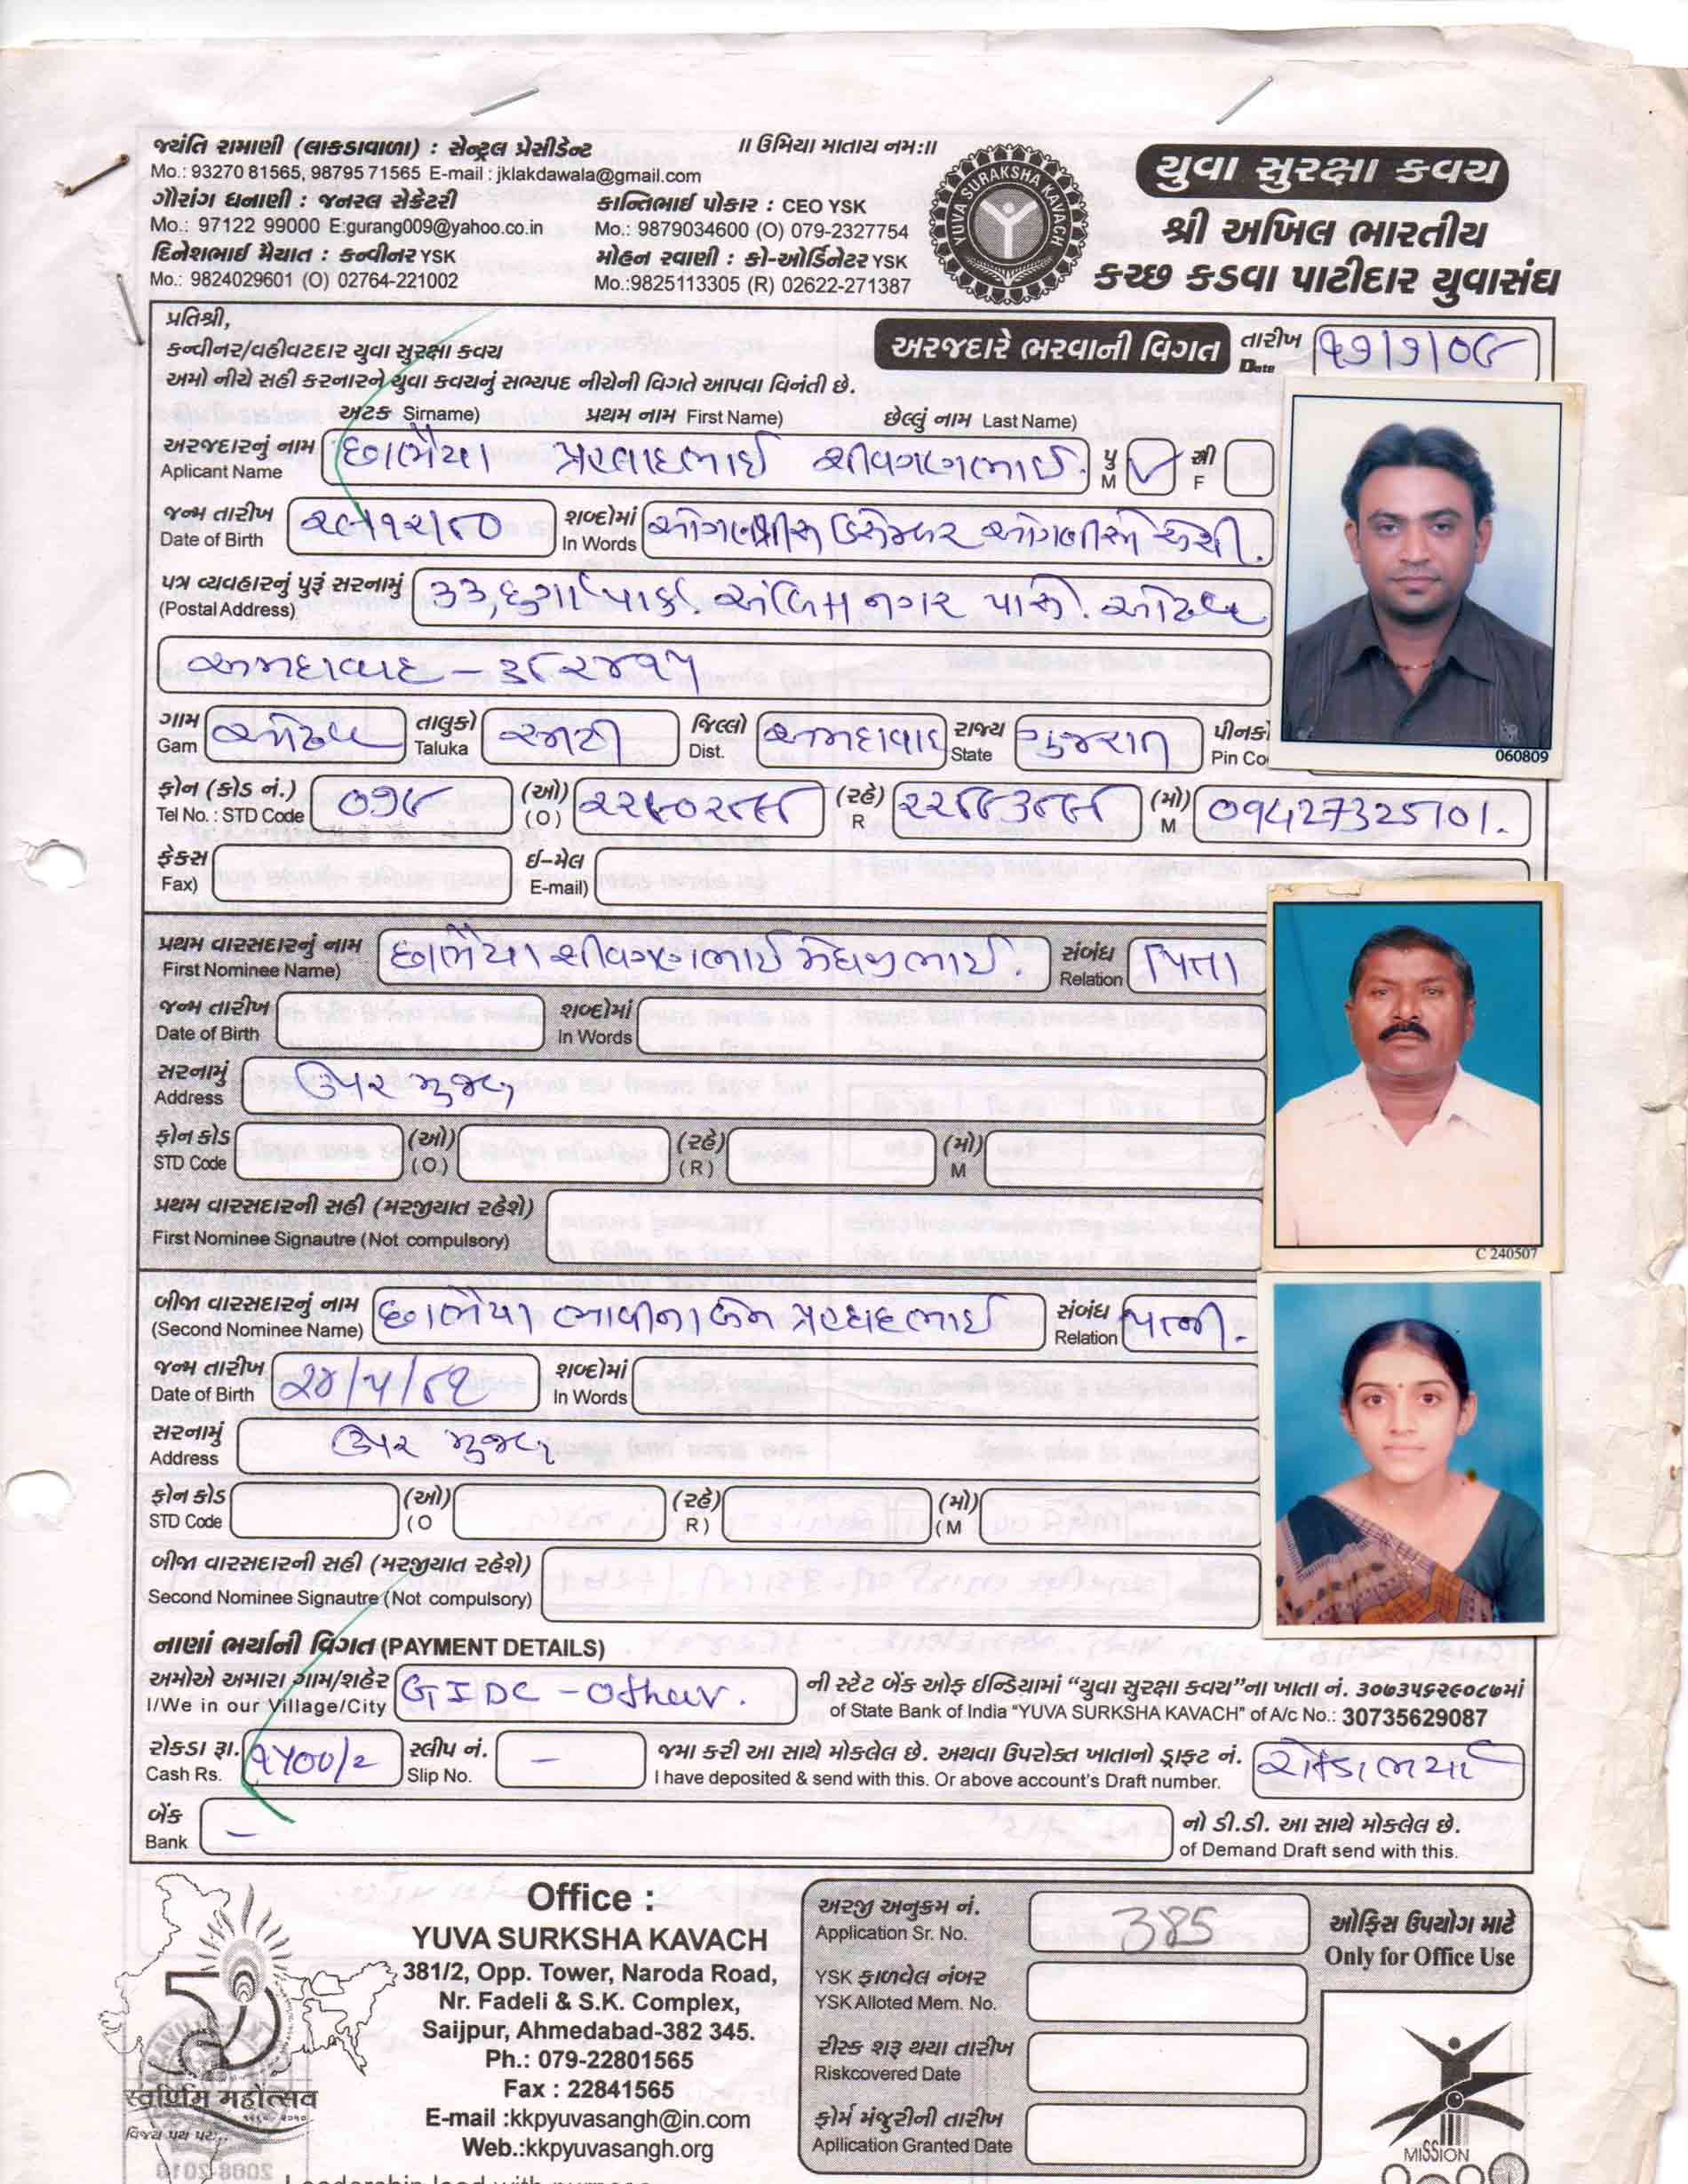 જયંતિ રામાણી (લાકડાવાળા) : સેન્ટ્રલ પ્રેસીડેન્ટ
Mo.: 93270 81565, 98795 71565 E-mail : jklakdawala@gmail.com
ગૌરાંગ ધનાણી : જનરલ સેક્રેટરી
Mo.: 97122 99000 E:gurang009@yahoo.co.in
દિનેશભાઈ મૈયાત : કન્વીનર YSK
Mo.: 9824029601 (O) 02764-221002
॥ ઉમિયા માતાય નમ:॥
કાન્તિભાઈ પોકાર : CEO YSK
Mo.: 9879034600 (O) 079-2327754
મોહન રવાણી : કો-ઓર્ડિનેટર YSK
Mo.:9825113305 (R) 02622-271387
YUVA SURAKSHA KAVACH
યુવા સુરક્ષા કવચ
શ્રી અખિલ ભારતીય
કચ્છ કડવા પાટીદાર યુવાસંઘ
પ્રતિશ્રી,
કન્વીનર/વહીવટદાર યુવા સુરક્ષા કવચ
અમો નીચે સહી કરનારને યુવા કવચનું સભ્યપદ નીચેની વિગતે આપવા વિનંતી છે.
અરજદારે ભરવાની વિગત તારીખ Date ૧૭/૧/૦૯
અટક Sirname) પ્રથમ નામ First Name) છેલ્લું નામ Last Name)
અરજદારનું નામ Aplicant Name છાભૈયા પ્રહલાદભાઈ શીવગણભાઈ. પુ M ✓ સ્ત્રી F
જન્મ તારીખ Date of Birth ૨૯/૧૨/૮૦ શબ્દોમાં In Words ઓગણત્રીસ ડિસેમ્બર ઓગણીસો એંશી.
પત્ર વ્યવહારનું પુરૂં સરનામું (Postal Address) ૩૩, દુર્ગા પાર્ક. અંબિકા નગર પાસે. ઓઢવ
અમદાવાદ – ૩૮૨૪૧૫
ગામ Gam ઓઢવ તાલુકો Taluka સીટી જિલ્લો Dist. અમદાવાદ રાજ્ય State ગુજરાત પીનકો Pin Co
060809
ફોન (કોડ નં.) Tel No. : STD Code ૦૭૯ (ઓ) (O) ૨૨૯૦૨૯૯૯ (રહે) R ૨૨૮૯૩૯૯૯ (મો) M 09427325101.
ફેકસ Fax) ઈ-મેલ E-mail)
પ્રથમ વારસદારનું નામ First Nominee Name) છાભૈયા શીવગણભાઈ મેઘજીભાઈ. સંબંધ Relation પિતા
જન્મ તારીખ Date of Birth શબ્દોમાં In Words
સરનામું Address ઉપર મુજબ
ફોન કોડ STD Code (ઓ) (O) (રહે) (R) (મો) M
પ્રથમ વારસદારની સહી (મરજીયાત રહેશે)
First Nominee Signautre (Not compulsory)
C 240507
બીજા વારસદારનું નામ (Second Nominee Name) છાભૈયા ભાવીનાબેન પ્રહલાદભાઈ સંબંધ Relation પત્ની.
જન્મ તારીખ Date of Birth ૨૪/૫/૮૧ શબ્દોમાં In Words
સરનામું Address ઉપર મુજબ
ફોન કોડ STD Code (ઓ) (O (રહે) R) (મો) (M
બીજા વારસદારની સહી (મરજીયાત રહેશે)
Second Nominee Signautre (Not compulsory)
નાણાં ભર્યાની વિગત (PAYMENT DETAILS)
અમોએ અમારા ગામ/શહેર I/We in our Village/City GIDC - Othav. ની સ્ટેટ બેંક ઓફ ઈન્ડિયામાં “યુવા સુરક્ષા કવચ”ના ખાતા નં. ૩૦૭૩૫૬૨૯૦૮૭માં
of State Bank of India “YUVA SURKSHA KAVACH” of A/c No.: 30735629087
રોકડા રૂા. Cash Rs. ૧૫૦૦/= સ્લીપ નં. Slip No. – જમા કરી આ સાથે મોકલેલ છે. અથવા ઉપરોક્ત ખાતાનો ડ્રાફ્ટ નં. રોકડા ભર્યા
I have deposited & send with this. Or above account's Draft number.
બેંક Bank – નો ડી.ડી. આ સાથે મોકલેલ છે.
of Demand Draft send with this.
Office :
YUVA SURKSHA KAVACH
381/2, Opp. Tower, Naroda Road,
Nr. Fadeli & S.K. Complex,
Saijpur, Ahmedabad-382 345.
Ph.: 079-22801565
Fax : 22841565
E-mail :kkpyuvasangh@in.com
Web.:kkpyuvasangh.org
स्वर्णिम महोत्सव
અરજી અનુક્રમ નં. Application Sr. No. 385
ઓફિસ ઉપયોગ માટે
Only for Office Use
YSK ફાળવેલ નંબર
YSK Alloted Mem. No.
રીસ્ક શરૂ થયા તારીખ
Riskcovered Date
ફોર્મ મંજુરીની તારીખ
Apllication Granted Date
MISSION